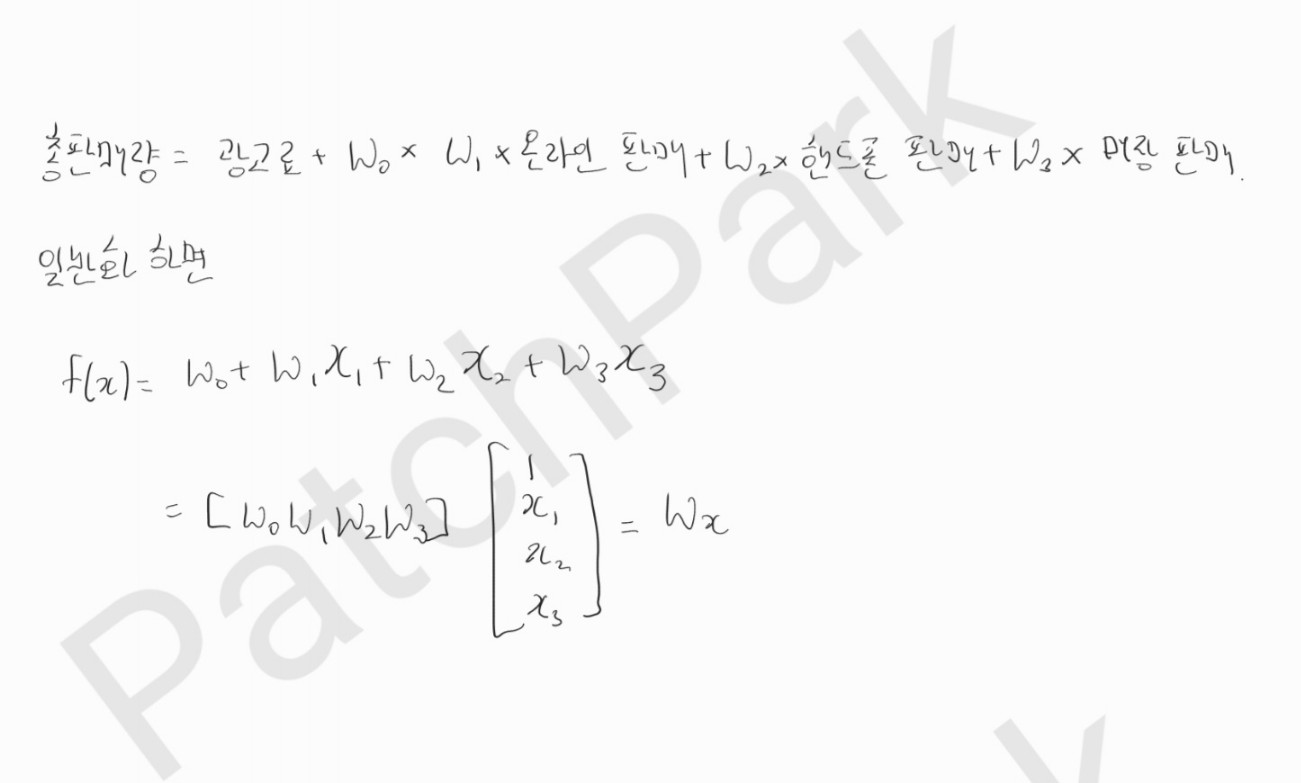 총판매량 = 광고료 + W₀ × W₁ × 온라인 판매 + W₂ × 핸드폰 판매 + W₃ × 매장 판매.
일반화 하면
f(x) = W₀ + W₁x₁ + W₂x₂ + W₃x₃
= [W₀W₁W₂W₃] [1 x₁ x₂ x₃] = Wx
PatchPark
k